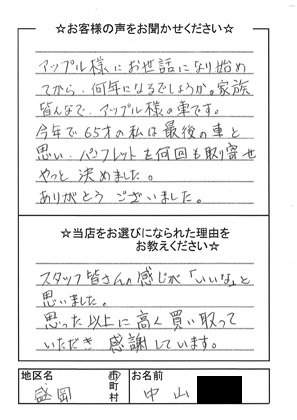 ☆お客様の声をお聞かせください☆
アップル様にお世話になり始め
てから、何年になるでしょうか。家族
皆んなで、アップル様の車です。
今年で65才の私は最後の車と
思い、パンフレットを何回も取り寄せ
やっと決めました。
ありがとうございました。
☆当店をお選びになられた理由を
お教えください☆
スタッフ皆さんの感じが「いいな」と
思いました。
思った以上に高く買い取って
いただき 感謝しています。
地区名 市町村 お名前
盛岡 中山